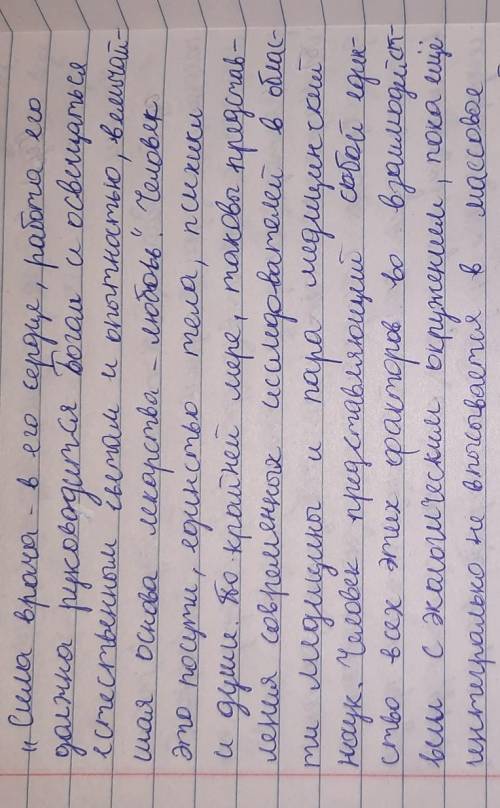 "Сила врача – в его сердце, работа его
должна руководится Богом и освещаться
естественным светом и опытностью, величай-
шая основа лекарства – любовь". Человек
это посути, единство тела, психики
и души. По крайней мере, таковы представ-
ления современных исследователей в облас-
ти медицины и пара медицинский
наук. Человек представляющий собой един-
ство всех этих факторов во взаимодейст-
вии с экологическим окружением, пока ещё
центигрально не вписывается в массовое